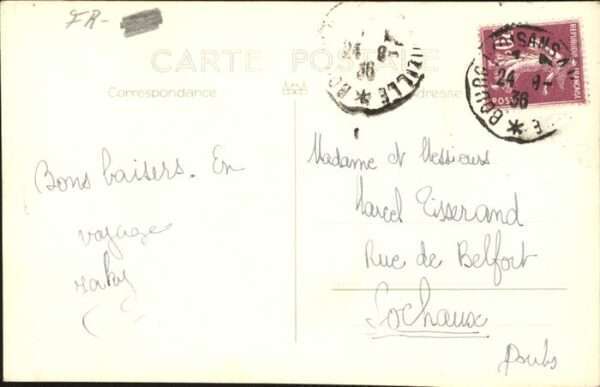 FR-
CARTE POSTALE
Correspondance
Adresse
24 8
36
24 8
36
REPUBLIQUE FRANÇAISE
POSTES
Bons baisers. En
voyage
Madame et Messieurs
Marcel Tisserand
Rue de Belfort
Sochaux
Doubs